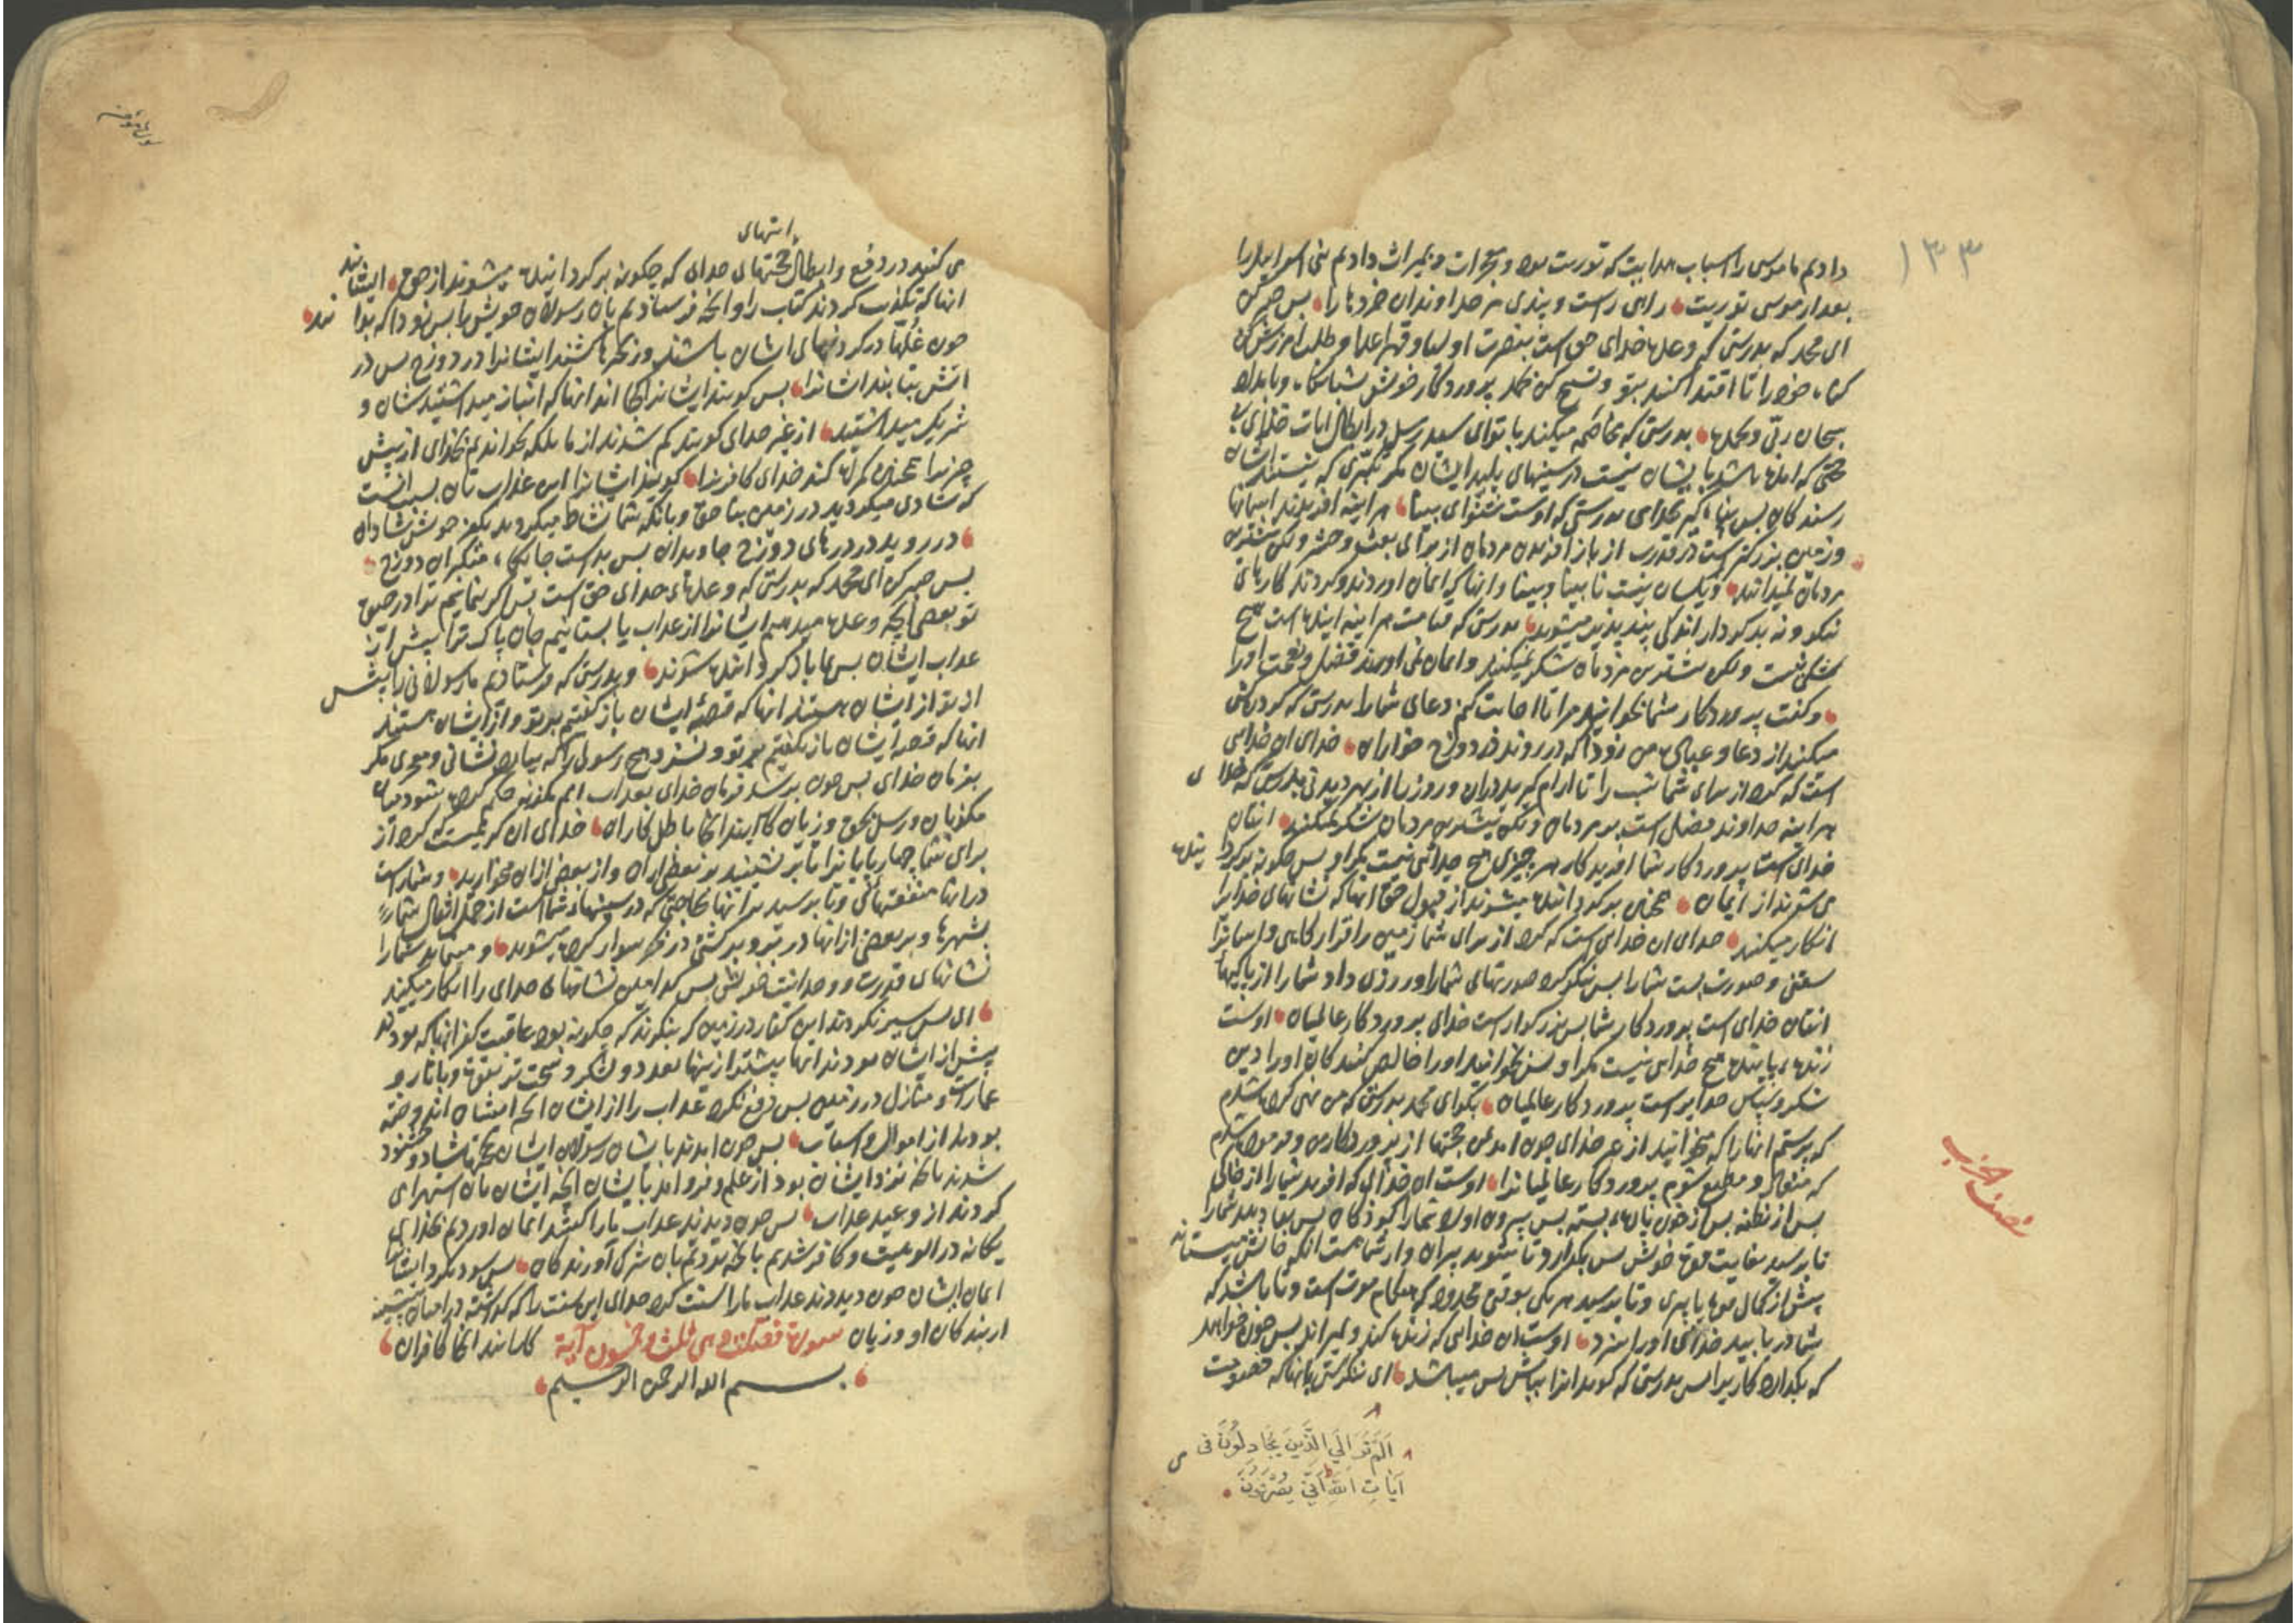 ۱۳۳
دادیم ما موسی را اسباب هدایت که توریت بود و معجزات و بمیراث دادیم بنی اسرایل را
بعد از موسی توریت راهی راست و پندی مر خداوندان خردها را بس صبر کن
ای محمد که بدرستی که وعده خدای حق است بنصرت اولیا و قهر اعدا و طلب امرزش کن
کناه خود را تا اقتدا کنند بتو و تسبیح کن بحمد پروردکار خویش شبانکاه و بامداد
سبحان ربی و بحمده بدرستی که مخاصمه میکنند با تو ای سید رسل در ابطال ایات خدای بی
حجتی که امده باشد بایشان نیست در سینهای پلید ایشان مکر تکبری که نیستند ایشان
رسندکان بس پناه کیر بخدای بدرستی که اوست شنوای بینا هر اینه افریدن اسمانها
و زمین بزرکتر است در قدرت از باز افریدن مردمان از برای بعث و حشر ولکن بیشترین
مردمان نمیدانند و یکسان نیست نابینا و بینا و انها که ایمان اوردند و کردند کارهای
نیکو و نه بدکردار اندکی پند پذیر میشوید بدرستی که قیامت هر اینه اینده است هیچ
شکی نیست ولکن بیشترین مردمان شکر نمیکنند و ایمان نمی اورند فضل و نعمت او را
و کفت پروردکار شما بخوانید مرا تا اجابت کنم دعای شما را بدرستی که کردنکشی
میکنند از دعا و عبادت من زود که در روند در دوزخ خواران خدای ان خدایی
است که کرد از برای شما شب را تا ارام کیرید دران و روز را از بهر دیدنی بدرستی که خدای
هر اینه خداوند فضل است بر مردمان ولکن بیشترین مردمان شکر نمیکنند انتان
خدای است پروردکار شما افریدکار هر چیزی هیچ خدایی نیست مکر او بس چکونه برکردانیده
می شوند از ایمان همچنین برکردانیده میشوند از قبول حق انها که نشانهای خدا را
انکار میکنند خدای ان خدای است که کرد از برای شما زمین را قرارکاهی و اسمان را
سقفی و صورت بست شما را بس نیکو کرد صورتهای شما را و روزی داد شما را از پاکیها
انتان خدای است پروردکار شما بس بزرکوار است خدای پروردکار عالمیان اوست
زنده پاینده هیچ خدای نیست مکر او بس بخوانید او را خالص کنندکان او را دین
شکر و سپاس خدایراست پروردکار عالمیان بکو ای محمد بدرستی که من نهی کرده شدم
که پرستم انها را که میخوانید از غیر خدای چون امد بمن حجتها از پروردکار من و فرموده شدم
که منقاد و مطیع شوم پروردکار عالمیان را اوست ان خدای که افرید شما را از خاکی
بس از نطفه بس از خون پاره بسته بس بیرون اورد شما را کودکان بس بهاء دهد شما را
تا برسید بغایت قوه خویش بس بکذارد تا شوید پیران و از شما هست انکه جانش میستاند
پیش از کمال قوه یا پیری و تا برسید هر یکی بوقتی محدود که هنکام موت است و تا باشد که
شما دریابید خدای او را بخرد اوست ان خدایی که زنده کند و بمیراند بس چون خواهد
که بکذارد کاریرا بس بدرستی که کوید انرا بباش بس میباشد ای ننکرستی بانها که خصومت
اَلَم تَرَ اِلَی الَّذینَ یُجَادِلُونَ فی
آیَاتِ اللهِ اَنّی یُصْرَفُونَ
نصف حزب
سورة المؤمن
می کنند در دفع و ابطال حجتهای خدای که چکونه برکردانیده میشوند از حق ایشانند
انها که تکذیب کردند کتاب را و انچه فرستادیم بان رسولان خویش را بس زود که بدانند
چون غلها در کردنهای ایشان باشند و زنجیرها کشند ایشانرا در دوزخ بس در
اتش بتابند ایشانرا بس کویند ایشانرا کجا اند انها که انباز میداشتید شان و
شریک میداشتید از غیر خدای کویند کم شدند از ما بلکه نخواندیم بخدای از پیش
چیزیرا همچنین کمراه کند خدای کافرانرا کویند ایشانرا این عذاب تان بسبب انست
که شادی میکردید در زمین بنا حق و بانکه شما نشاط میکردید بکفر خویش شادان
در روید در درهای دوزخ جاویدان بس بد است جایکاه متکبران دوزخ
بس صبر کن ای محمد که بدرستی که وعدهای خدای حق است بس اکر بنماییم ترا در حیوة
تو بعضی انچه وعده میدهیم ایشانرا از عذاب یا بستانیم جان پاک ترا پیش از
عذاب ایشان بس بما باز کردانیده شوند و بدرستی که فرستادیم ما رسولانی را پیش
از تو از ایشان هستند انها که قصه ایشان باز کفتیم بر تو و از ایشان هستند
انها که قصه ایشان باز نکفتیم بر تو و نسزد هیچ رسولی را که بیارد نشانی و معجزی مکر
بفرمان خدای بس چون برسد فرمان خدای بعذاب امم مکذبه حکم کرده شود میان
مکذبان و رسل بحق و زیان کار ایند انجا باطل کاران خدای ان کریمیست که کرد از
برای شما چهارپایانرا تا بر نشینید بر بعضی ازان و از بعضی ازان میخورید و شماراست
در انها منفعتهای و تا برسید بر انها بحاجتی که در سینهاء شما است از حمل اثقال شما را
بشهرها و بر بعضی ازانها در بر و بر کشتی در بحر سوار کرده میشوید و مینماید شما را
نشانهای قدرت و وحدانیت خویش بس کدامین نشانهای خدای را انکار میکنید
ای بس سیر نکردند این کفار در زمین که بنکرند که چکونه بود عاقبت کفر انها که بودند
پیش از ایشان بودند انها بیشتر از اینها بعدد و لشکر و سخت تر بقوت و باثار و
عمارت و منازل در زمین بس دفع نکرد عذاب را از ایشان انچه ایشان اندوخته
بودند از اموال و اسباب بس چون امدند بایشان رسولان ایشان بحجتها شاد و خشنود
شدند بانچه نزد ایشان بود از علم و فرو امد بایشان انچه ایشان بان استهزای
کردند از وعید عذاب بس چون دیدند عذاب ما را کفتند ایمان اوردیم بخدای
یکانه در الوهیت و کافر شدیم بانچه بودیم بان شرک آورندکان بس سود نکرد ایشانرا
ایمان ایشان چون دیدند عذاب ما را سنت کرد خدای این سنت را که کذشته در امتان پیشینه
از بندکان او و زیان سورة فصلت و هی ثلث و خمسون آیة کار ماند انجا کافران
بسم الله الرحمن الرحیم